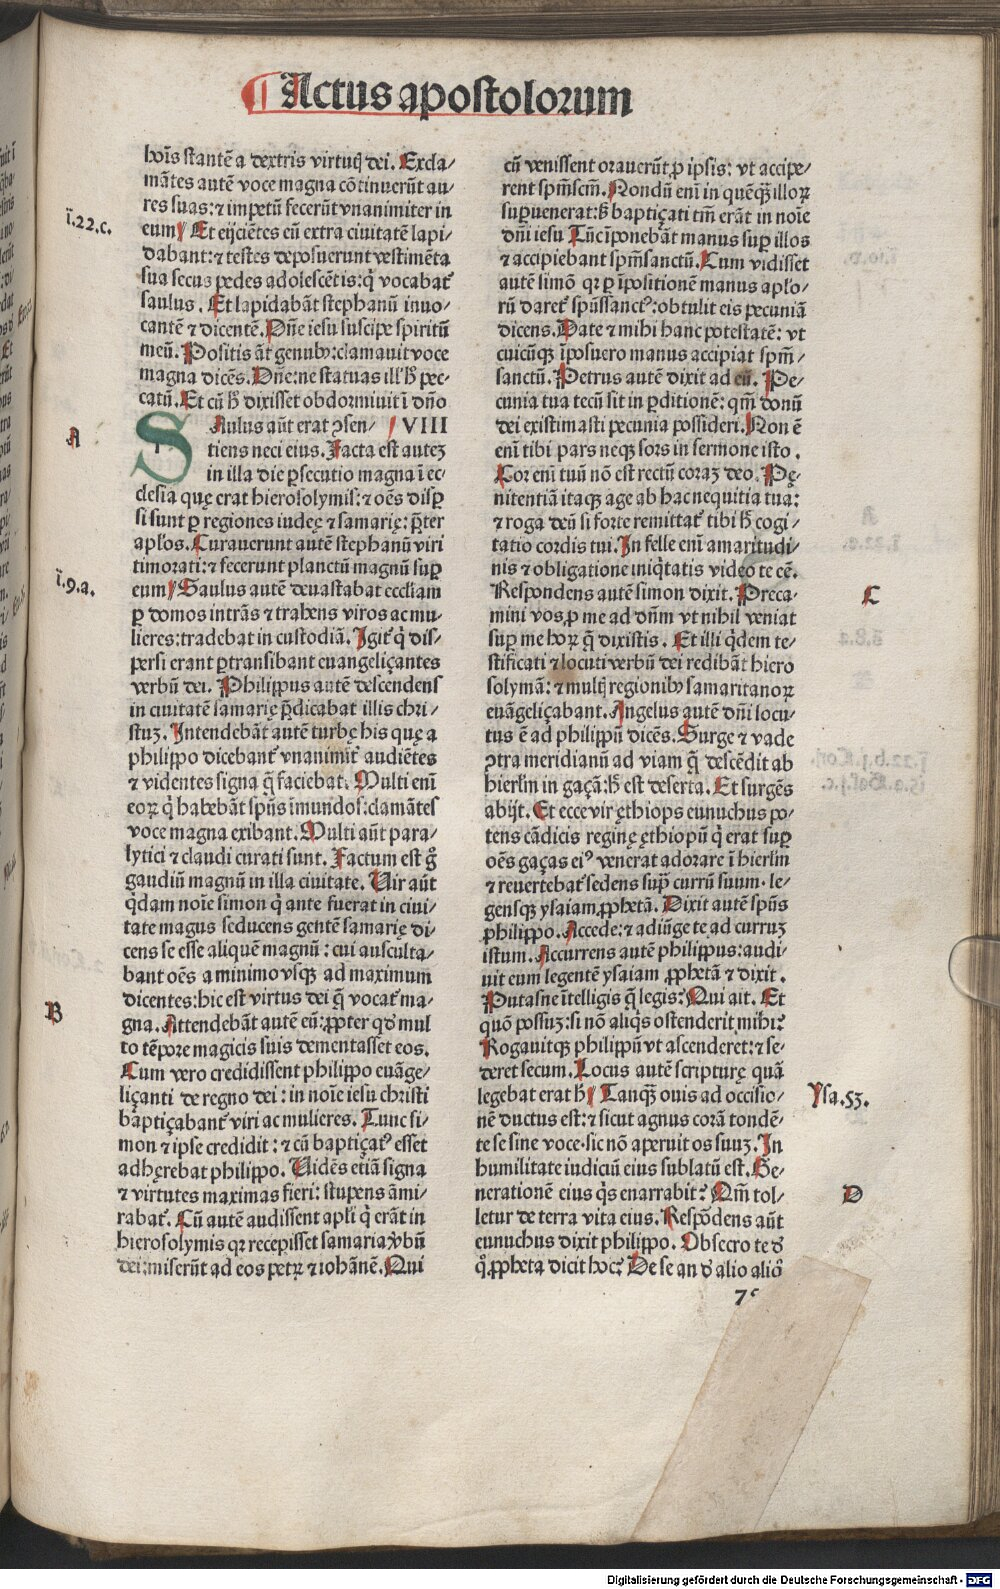 Actus apostolorum
hoīs stantē a dextris virtutꝭ dei. Excla/
mātes autē voce magna cōtinuerūt au/
res suas: ⁊ impetū fecerūt vnanimiter in
ī.22.c.
eum Et eijciētes eū extra ciuitatē lapi/
dabant: ⁊ testes deposuerunt vestimēta
sua secus pedes adolescētis: q̄ vocabat᷑
saulus. Et lapidabāt stephanū inuo/
cantē ⁊ dicentē. Dn̄e iesu suscipe spiritū
meū. Positis āt genubꝰ: clamauit voce
magna dicēs. Dn̄e: ne statuas ill' h̄ pec/
catū. Et cū h̄ dixisset obdormiuit ī dn̄o
A
SAulus aūt erat ꝯsen/ VIII
tiens neci eius. Facta est autez
in illa die ꝑsecutio magna ī ec/
clesia quę erat hierosolymis: ⁊ oēs disꝑ
si sunt ꝑ regiones iudeę ⁊ samarię: p̄ter
apl'os. Curauerunt autē stephanū viri
timorati: ⁊ fecerunt planctū magnū suꝑ
ī.9.a.
eum Saulus autē deuastabat eccl'iam
ꝑ domos intrās ⁊ trahens viros ac mu/
lieres: tradebat in custodiā. Igit᷑ q̄ dis/
persi erant ꝑtransibant euangeliçantes
verbū dei. Philippus autē descendens
in ciuitatē samarię p̄dicabat illis chri/
stuz. Intendebāt autē turbę his quę a
philippo dicebant᷑ vnanimit᷑ audiētes
⁊ videntes signa q̄ faciebat. Multi enī
eoꝝ q̄ habebāt sp̄us īmundos: clamātes
voce magna exibant. Multi aūt para/
lytici ⁊ claudi curati sunt. Factum est g̊
gaudiū magnū in illa ciuitate. Uir aūt
q̄dam noīe simon q̄ ante fuerat in ciui/
tate magus seducens gentē samarię di/
cens se esse aliquē magnū: cui ausculta/
bant oēs a minimo vsqꝫ ad maximum
B
dicentes: hic est virtus dei q̄ vocat᷑ ma/
gna. Attendebāt autē eū: ꝓpter qd' mul
to tēpore magicis suis dementasset eos.
Cum vero credidissent philippo euāge/
liçanti de regno dei: in noīe iesu christi
baptiçabant᷑ viri ac mulieres. Tunc si/
mon ⁊ ipse credidit: ⁊ cū baptiçatꝰ esset
adhęrebat philippo. Uidēs etiā signa
⁊ virtutes maximas fieri: stupens āmi/
rabat᷑. Cū autē audissent apl'i q̄ erāt in
hierosolymis qꝛ recepisset samaria v̄bū
dei: miserūt ad eos petꝝ ⁊ iohānē. Qui
cū venissent orauerūt ꝓ ipsis: vt accipe/
rent spm̄scm̄. Nondū enī in quēqꝫ illoꝝ
suꝑuenerat: s̄ baptiçati tm̄ erāt in noīe
dn̄i iesu Tūc īponebāt manus suꝑ illos
⁊ accipiebant spm̄sanctū. Cum vidisset
autē simō qꝛ ꝑ īpositionē manus apl'o/
rū daret᷑ sp̄ūssanctꝰ: obtulit eis pecuniā
dicens. Date ⁊ mihi hanc potestatē: vt
cuicūqꝫ īposuero manus accipiat spm̄/
sanctū. Petrus autē dixit ad eū. Pe/
cunia tua tecū sit in ꝑditionē: qm̄ donū
dei existimasti pecunia possideri. Non ē
enī tibi pars neqꝫ sors in sermone isto.
Cor enī tuū nō est rectū coraz deo. Pę/
nitentiā itaqꝫ age ab hac nequitia tua:
⁊ roga deū si forte remittat᷑ tibi h̄ cogi/
tatio cordis tui. In felle enī amaritudi/
nis ⁊ obligatione iniq̄tatis video te eē.
C
Respondens autē simon dixit. Preca/
mini vos ꝓ me ad dn̄m vt nihil veniat
suꝑ me hoꝝ q̄ dixistis. Et illi q̄dem te/
stificati ⁊ locuti verbū dei redibāt hiero
solymā: ⁊ multꝭ regionibꝰ samaritanoꝝ
euāgeliçabant. Angelus autē dn̄i locu/
tus ē ad philippū dicēs. Surge ⁊ vade
ꝯtra meridianū ad viam q̄ descēdit ab
hierl'm in gaçā: h̄ est deserta. Et surgēs
abijt. Et ecce vir ęthiops eunuchus po/
tens cādicis reginę ęthiopū q̄ erat suꝑ
oēs gaças eiꝰ venerat adorare ī hierl'm
⁊ reuertebat᷑ sedens sup̄ currū suum. le/
gensqꝫ ysaiam ꝓphetā. Dixit autē sp̄us
philippo. Accede: ⁊ adiūge te ad curruz
istum. Accurrens autē philippus: audi/
uit eum legentē ysaiam ꝓphetā ⁊ dixit.
Putasne ītelligis q̄ legis? Qui ait. Et
quō possuz: si nō aliq̄s ostenderit mihi?
Rogauitqꝫ philippū vt ascenderet: ⁊ se/
deret secum. Locus autē scripturę quā
Ysa.53.
legebat erat h̄ Tanqꝫ ouis ad occisio/
nē ductus est: ⁊ sicut agnus corā tondē/
te se sine voce. sic nō aperuit os suuz. In
humilitate iudiciū eius sublatū est. Ge/
D
nerationē eius q̄s enarrabit? Qm̄ tol/
letur de terra vita eius. Respōdens aūt
eunuchus dixit philippo. Obsecro te d'
q̊ ꝓpheta dicit hoc? De se an d' alio aliq̊
Digitalisierung gefördert durch die Deutsche Forschungsgemeinschaft - DFG